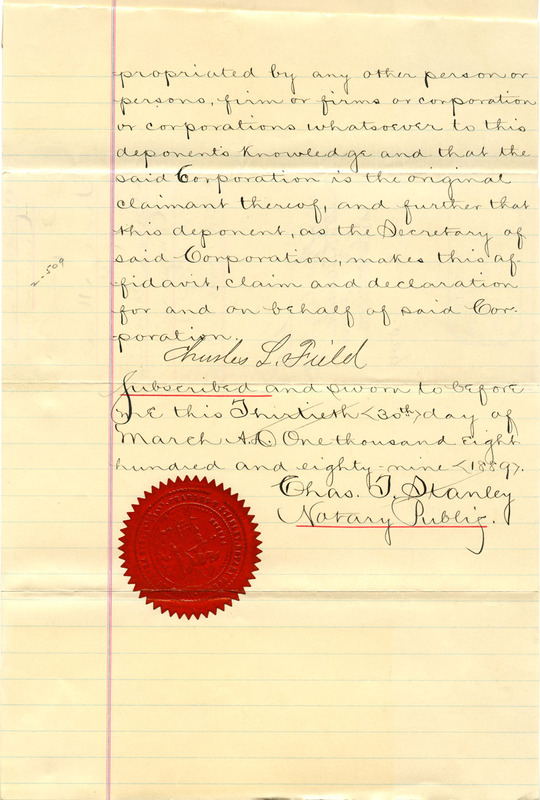 propriated by any other person or
persons, firm or firms or corporation
or corporations whatsoever to this
deponent's knowledge and that the
said Corporation is the original
claimant thereof, and further that
this deponent, as the Secretary of
said Corporation, makes this af-
fidavit, claim and declaration
for and on behalf of said Cor-
poration.
Charles L. Field
Subscribed and sworn to before
me this Thirtieth <30th> day of
March A.D. One thousand eight
hundred and eighty-nine <1889>.
Chas. T. Stanley
Notary Public.
2-509